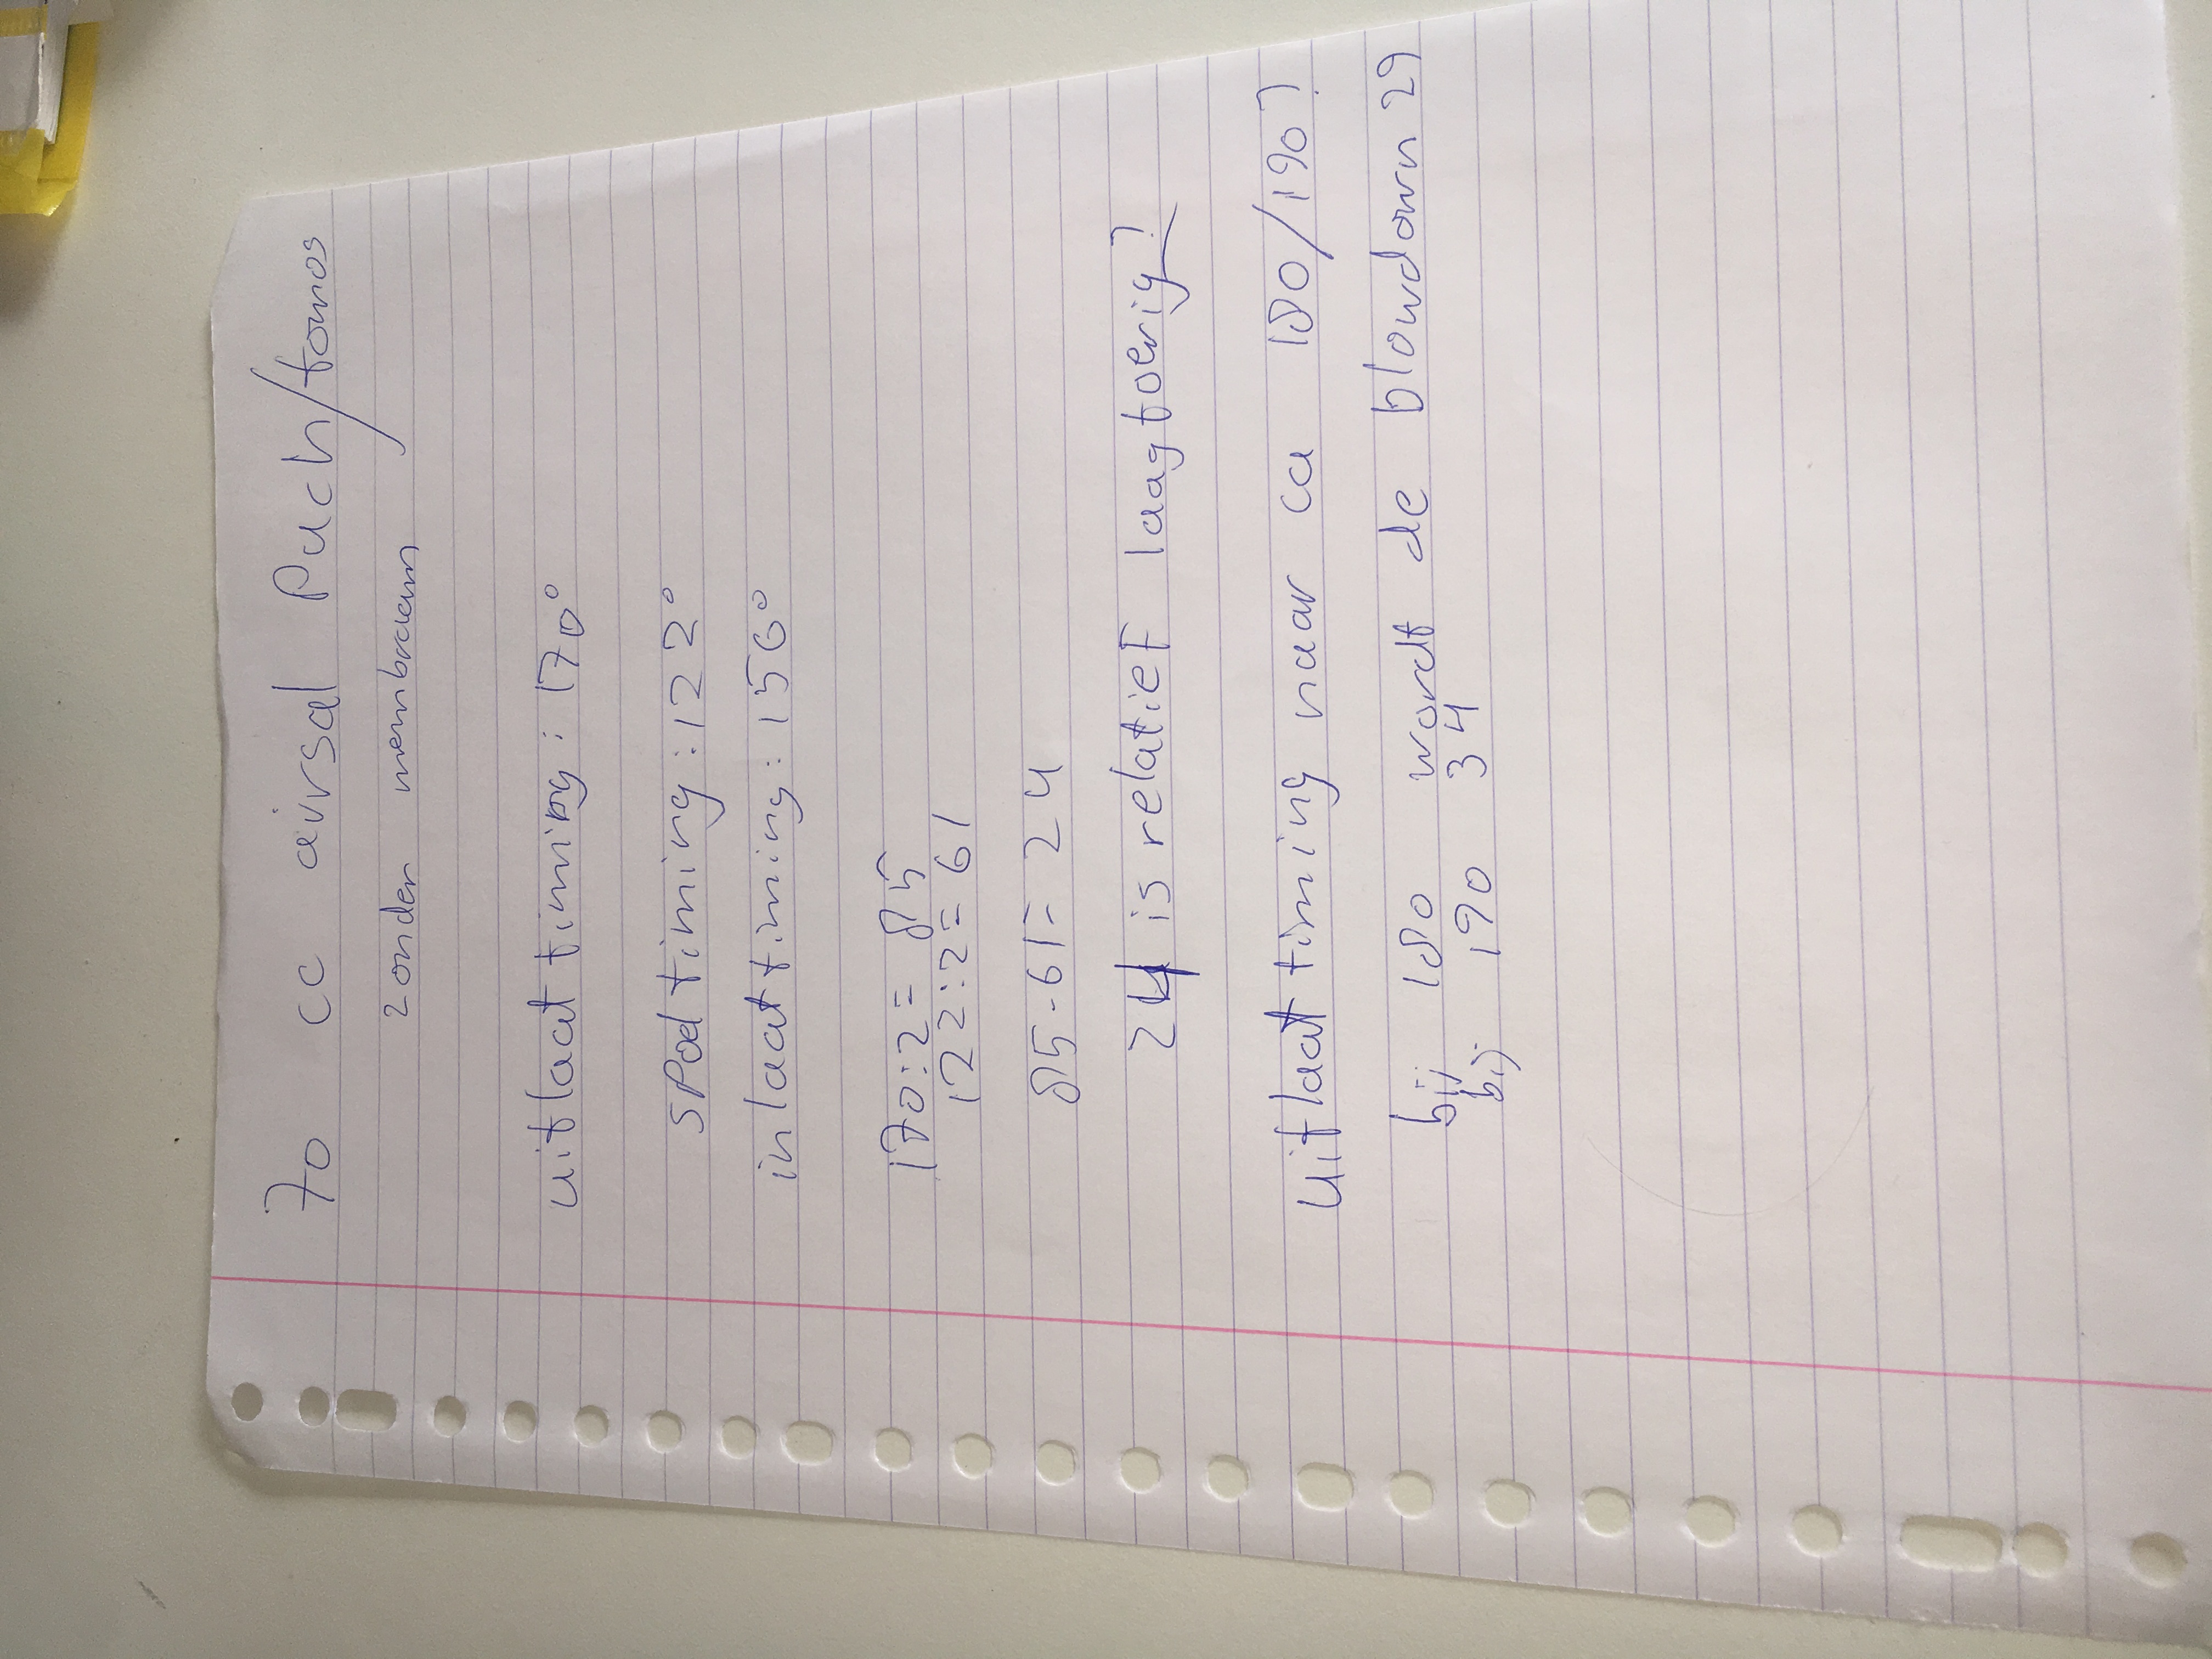 70 cc airsal Puch/tomos
zonder membraam
uitlaat timing: 170°
spoel timing: 122°
inlaat timing: 156°
170:2= 85
122:2= 61
85-61= 24
24 is relatief laagtoerig?
uitlaat timing naar ca 180/190?
bij 180 wordt de blowdown 29
bij 190 34